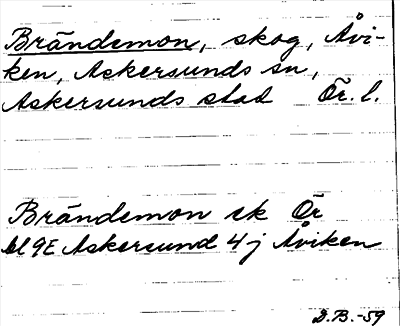 Brändemon, skog, Åvi-
ken, Askersunds sn,
Askersunds stad Ör. l.
Brändemon sk Ör
bl 9E Askersund 4j Åviken
D.B.-59